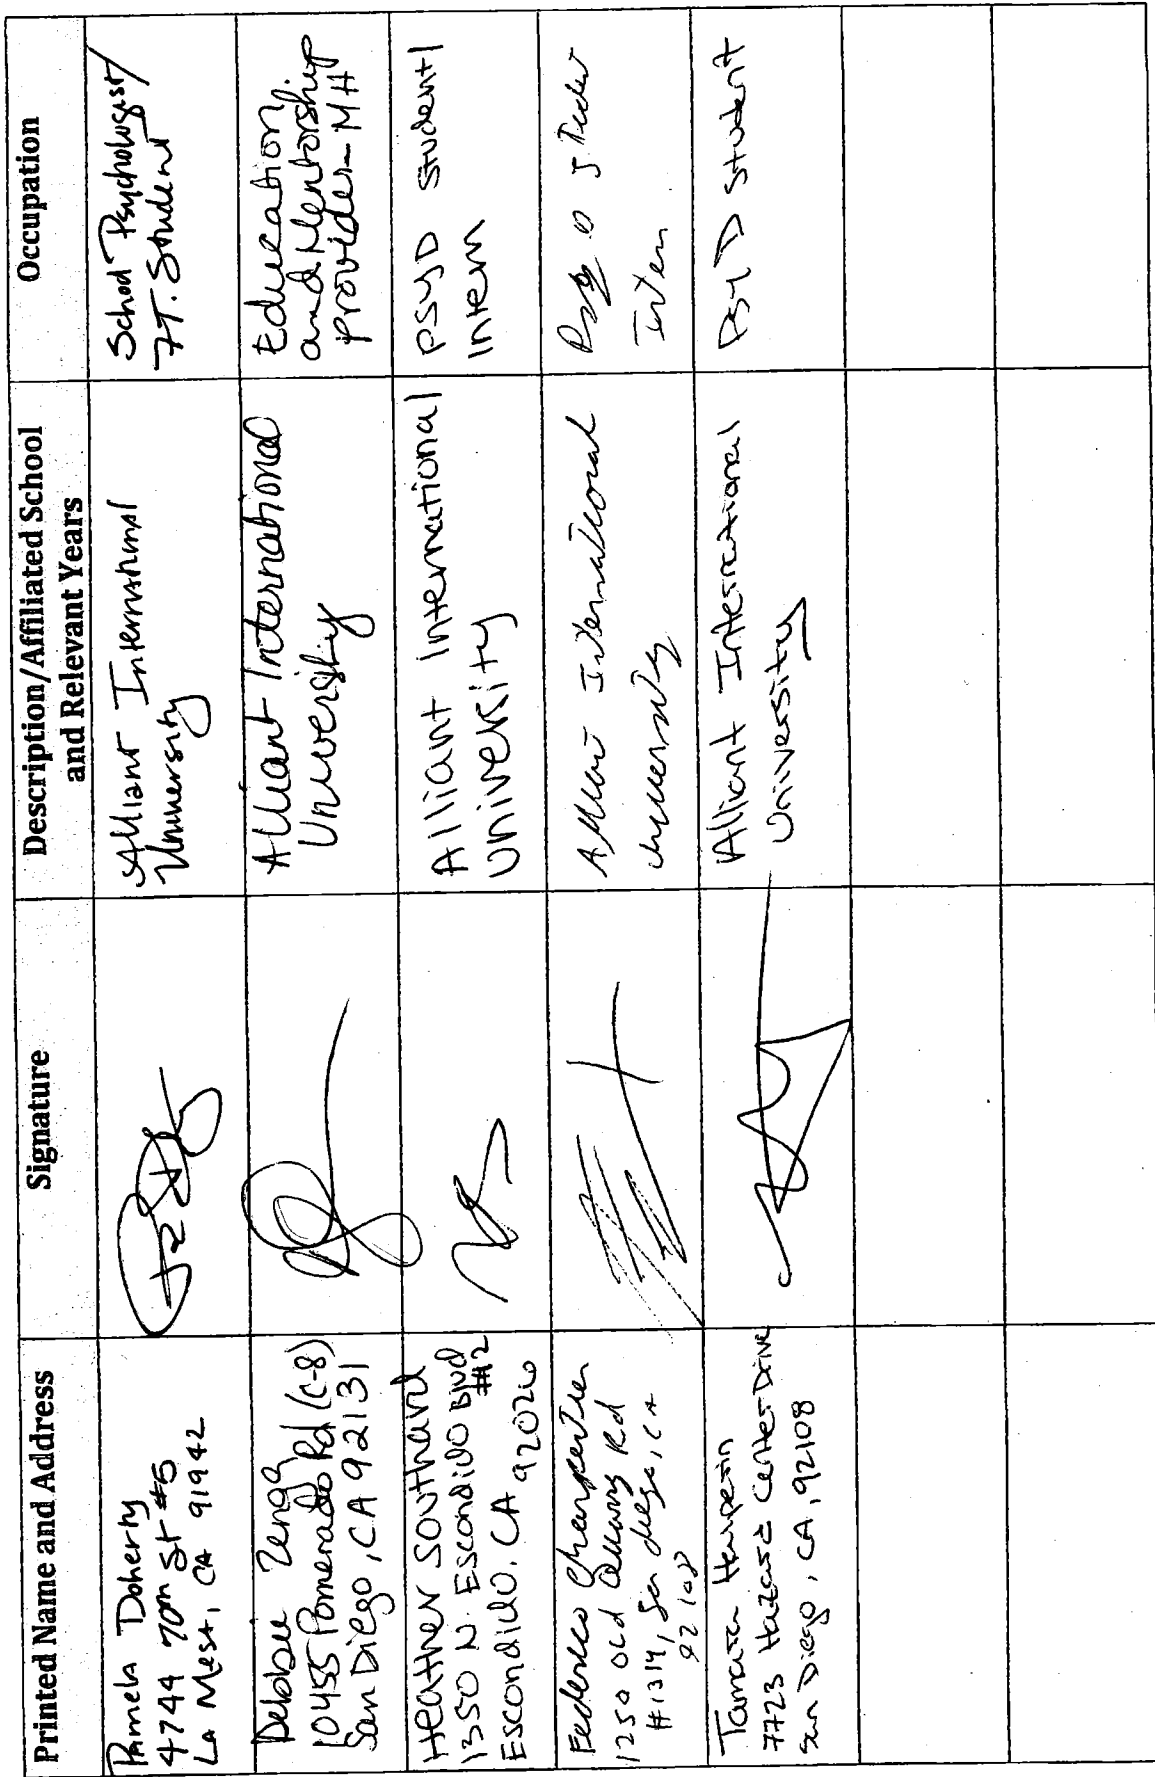 Printed Name and Address
Signature
Description/Affiliated School
and Relevant Years
Occupation
Pamela Doherty
4744 70th St #5
La Mesa, CA 91942
Alliant International
University
School Psychologist/
FT. Student
Debbie Zenga
10455 Pomerado Rd (C-8)
San Diego, CA 92131
Alliant International
University
Education
and Mentorship
provider-MH
Heather Southard
1350 N. Escondido Blvd
#12
Escondido, CA 92026
Alliant International
University
PSYD Student
Intern
Federico Charpentier
1250 Old Quarry Rd
#1314, San diego, CA
92108
International
University
Intern
Tamara
7723 Hazard Center Drive
San Diego, CA, 92108
Alliant International
University
PsyD Student